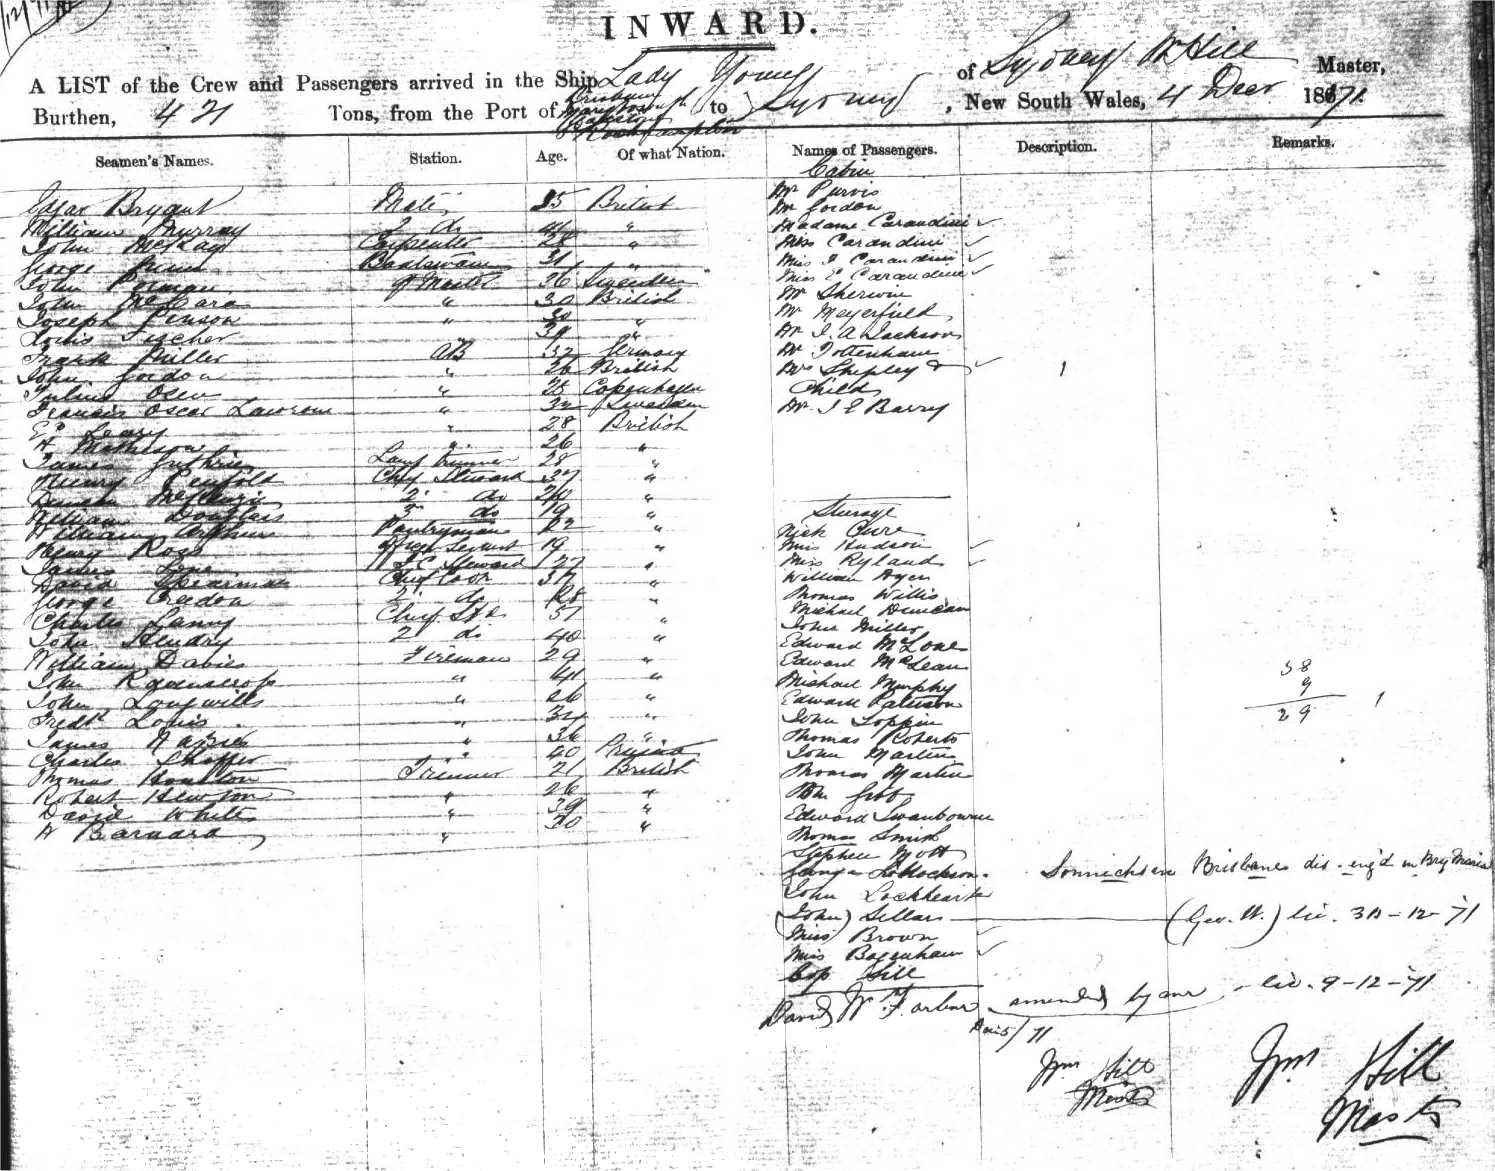 12/11
INWARD.
A LIST of the Crew and Passengers arrived in the Ship Lady Young of Sydney Wm Hill Master,
Burthen, 421 Tons, from the Port of Brisbane Maryborough Gladstone & Rockhampton to Sydney, New South Wales, 4 Decr 1871.
Seamen's Names. Station. Age. Of what Nation. Names of Passengers. Description. Remarks.
Edgar Bryant Mate 35 British
William Murray 2 do "
John McKay Carpenter 28 "
George Boatswain 31 "
John Q Master 36 Sweeden
John McCara " 30 British
Joseph Pinson " 30 "
Louis Fischer " 39 "
Frank Miller AB 32 Germany
John Gordon " 26 British
Julius Olsen " 25 Copenhagen
Francis Oscar " 32 Sweeden
Ed Leary " 28 British
A Mathieson " 26 "
James Guthrie Lamp trimmer 28 "
Henry Penfold Chief Steward 37 "
Duncan McKenzie 2 do "
William Douglass 3 do 19 "
William Arthur Pantryman 22 "
Henry Ross 19 "
James Steward 27 "
David Spearman Chief Cook 37 "
George Creedon 2 do 28 "
Charles Lanny Chief "
John Hendry 2 do 40 "
William Davies Fireman 29 "
John " 41 "
John Longwills " 26 "
Fredk Louis " 34 "
James " 36 "
Charles 40 Prussia
Thomas Boulton Trimmer 21 British
Robert Hewson " 26 "
David White " 39 "
A Barnard " 30 "
Cabin
Mr Purvis
Mr Gordon
Madame Carandini ✓
Miss Carandini ✓
Miss I Carandini ✓
Miss E Carandini ✓
Mr Sherwin
Mr Meyerfield
Mr I. A. Jackson
Mr Tottenham
Mrs Shepley & ✓ 1
Child
Mr I E Barry
Steerage
Nick Cure
Miss Hudson ✓
Miss Ryland ✓
William Ayer
Thomas Willis
Michael Duncan
John Miller
Edward McLone
Edward McLean
Michael Murphy
Edward Paterson
John Toppin
Thomas Roberts
John Martin
Thomas Martin
Wm Gibb
Edward Swanbourne
Thomas Smith
Stephen Mott
38
9
29 1
Sonnichsen Brisbane dis. eng'd in Brig Maria
John Lockheart
(John) Sellars (Geo. W.) lic. 30-12-71
Miss Brown ✓
Miss Bagenham ✓
Cap Hill
David Wm Farbar amended by me lic. 9-12-71
Dec 5/71
Wm Hill
Master
Wm Hill
Master